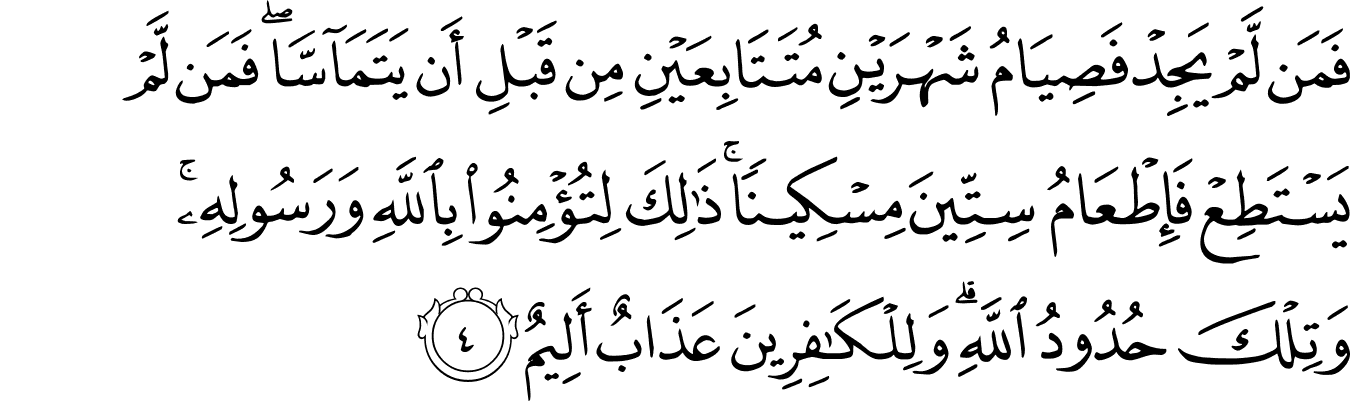 فَمَن لَّمْ يَجِدْ فَصِيَامُ شَهْرَيْنِ مُتَتَابِعَيْنِ مِن قَبْلِ أَن يَتَمَآسَّا ۖ فَمَن لَّمْ
يَسْتَطِعْ فَإِطْعَامُ سِتِّينَ مِسْكِينًا ۚ ذَٰلِكَ لِتُؤْمِنُوا۟ بِٱللَّهِ وَرَسُولِهِۦ ۚ
وَتِلْكَ حُدُودُ ٱللَّهِ ۗ وَلِلْكَٰفِرِينَ عَذَابٌ أَلِيمٌ ٤